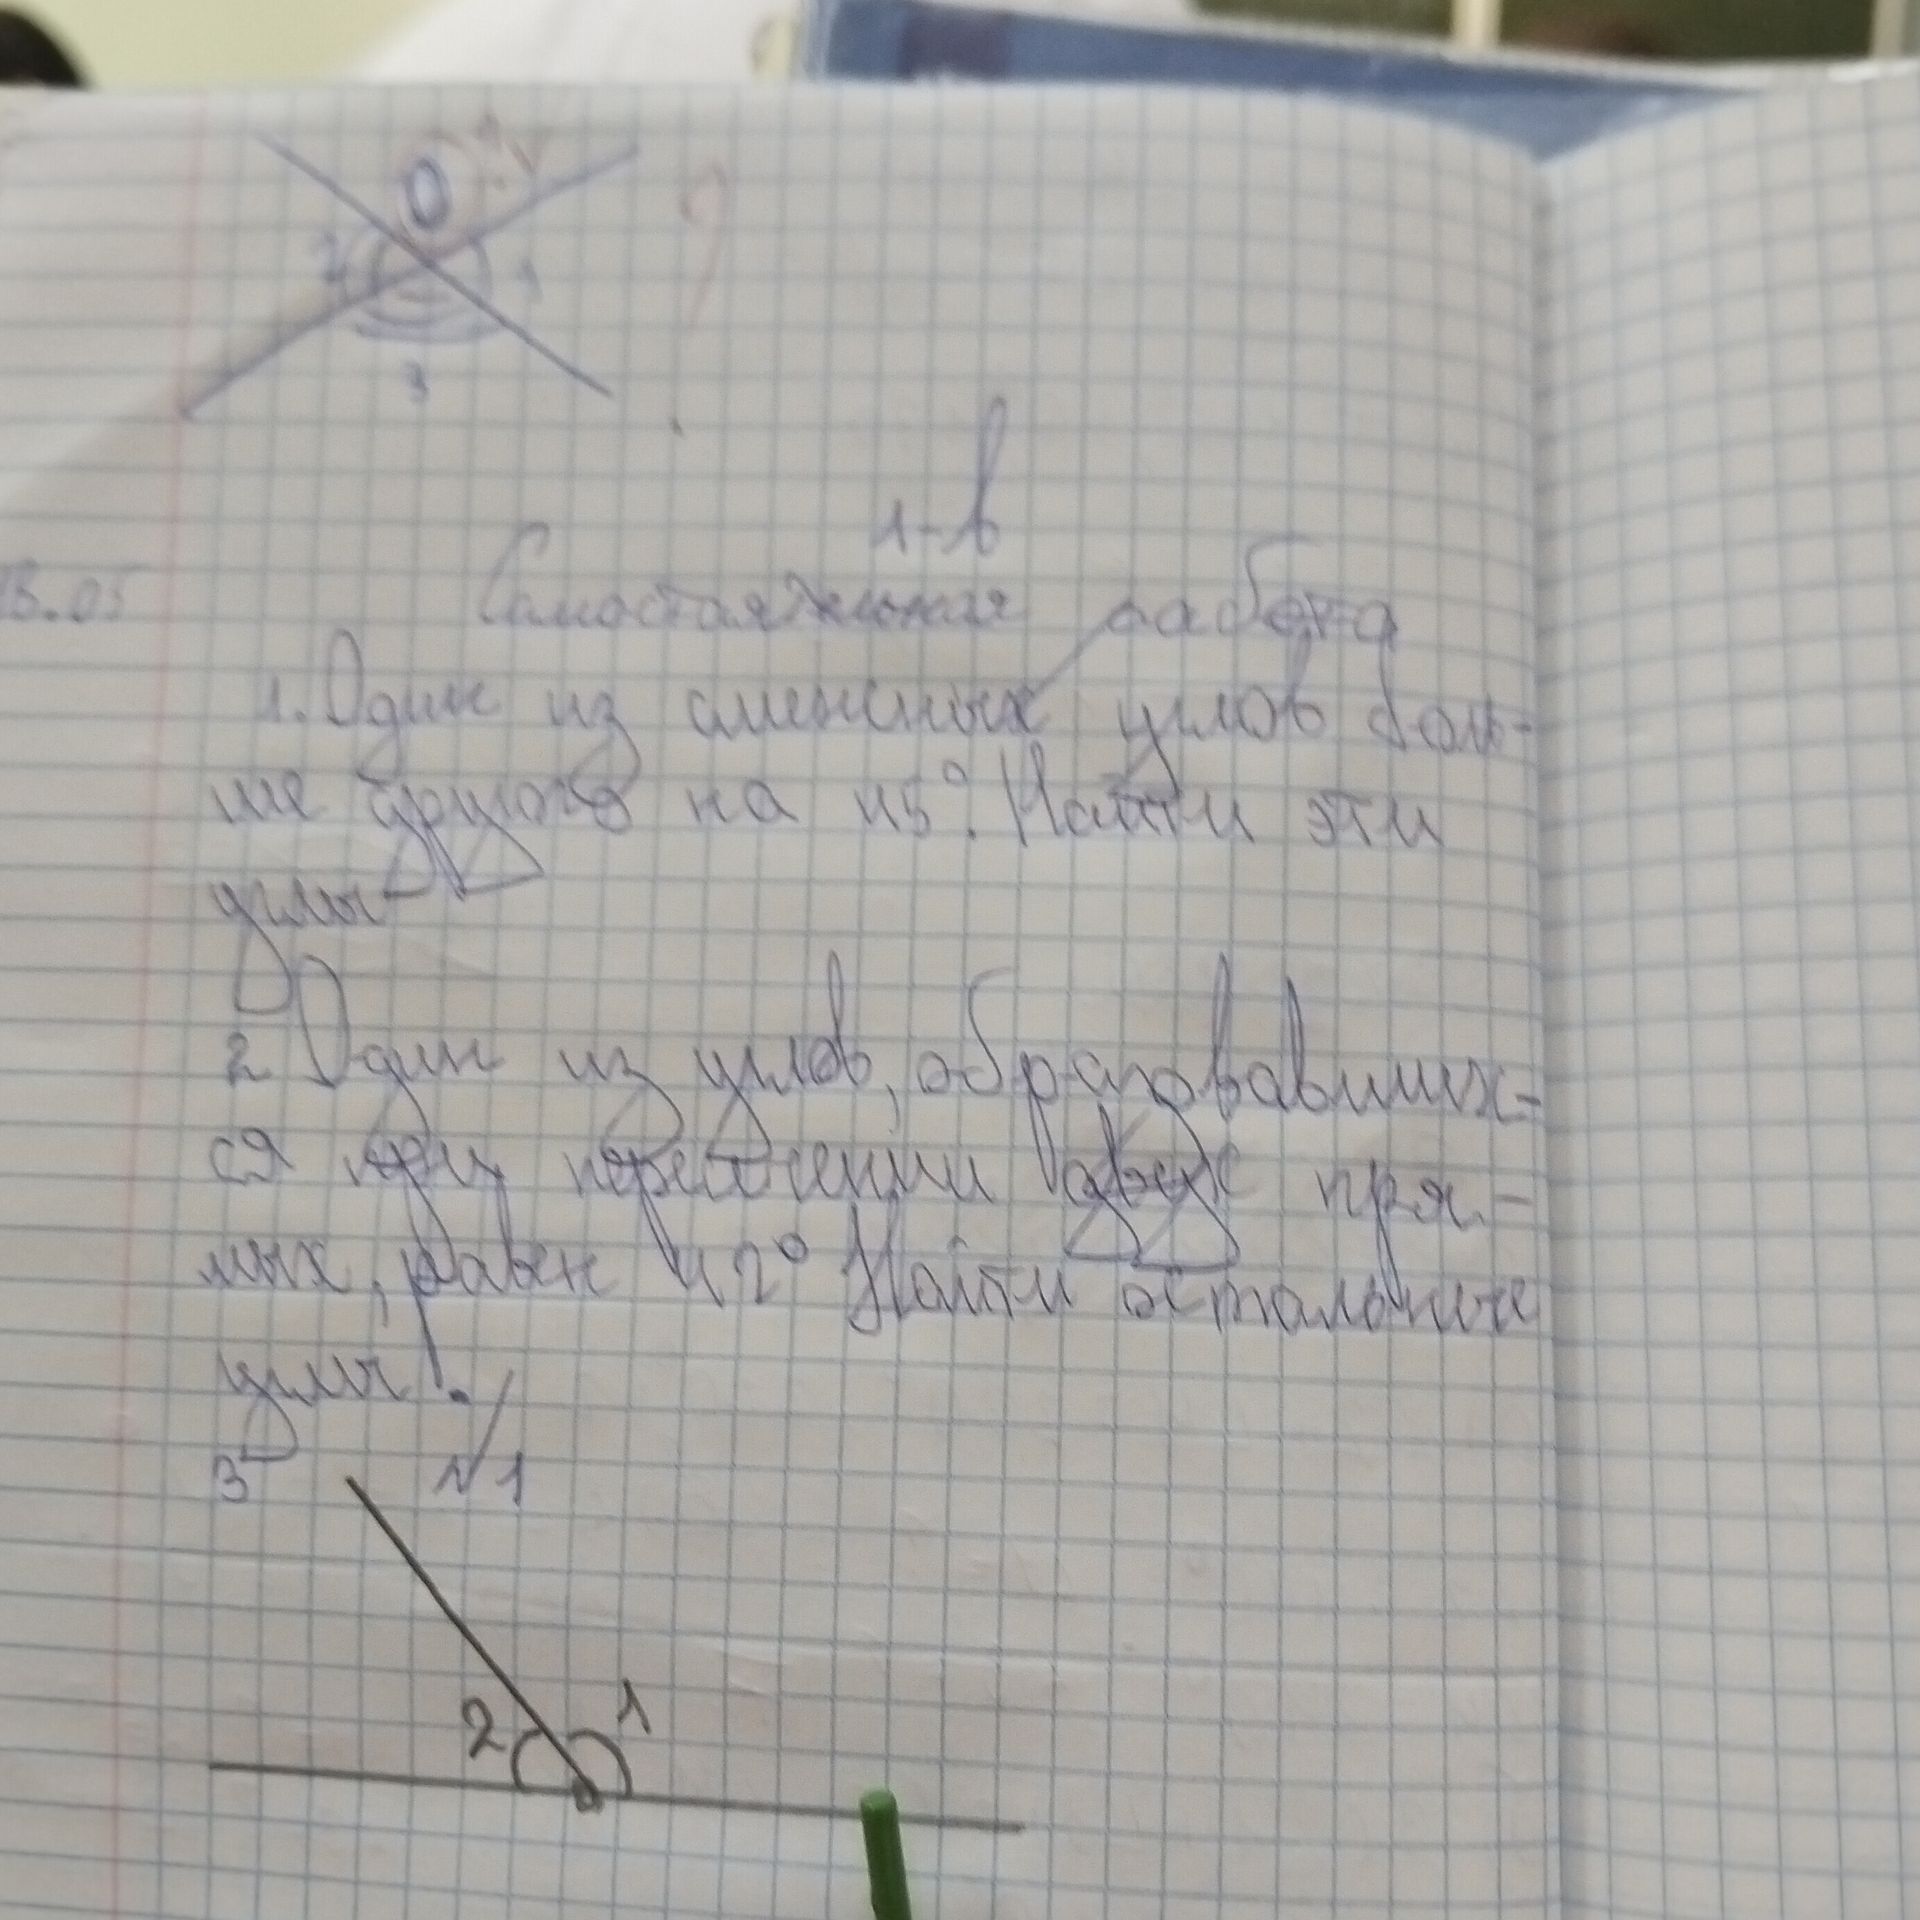 2
1
3
1-в
Самостоятельная работа
1. Один из смежных углов боль-
ше другого на 45°. Найти эти
углы
2 Один из углов, образовавших-
ся при пересечении двух пря-
мых, равен 42° Найти остальные
углы.
3 №1
2 1